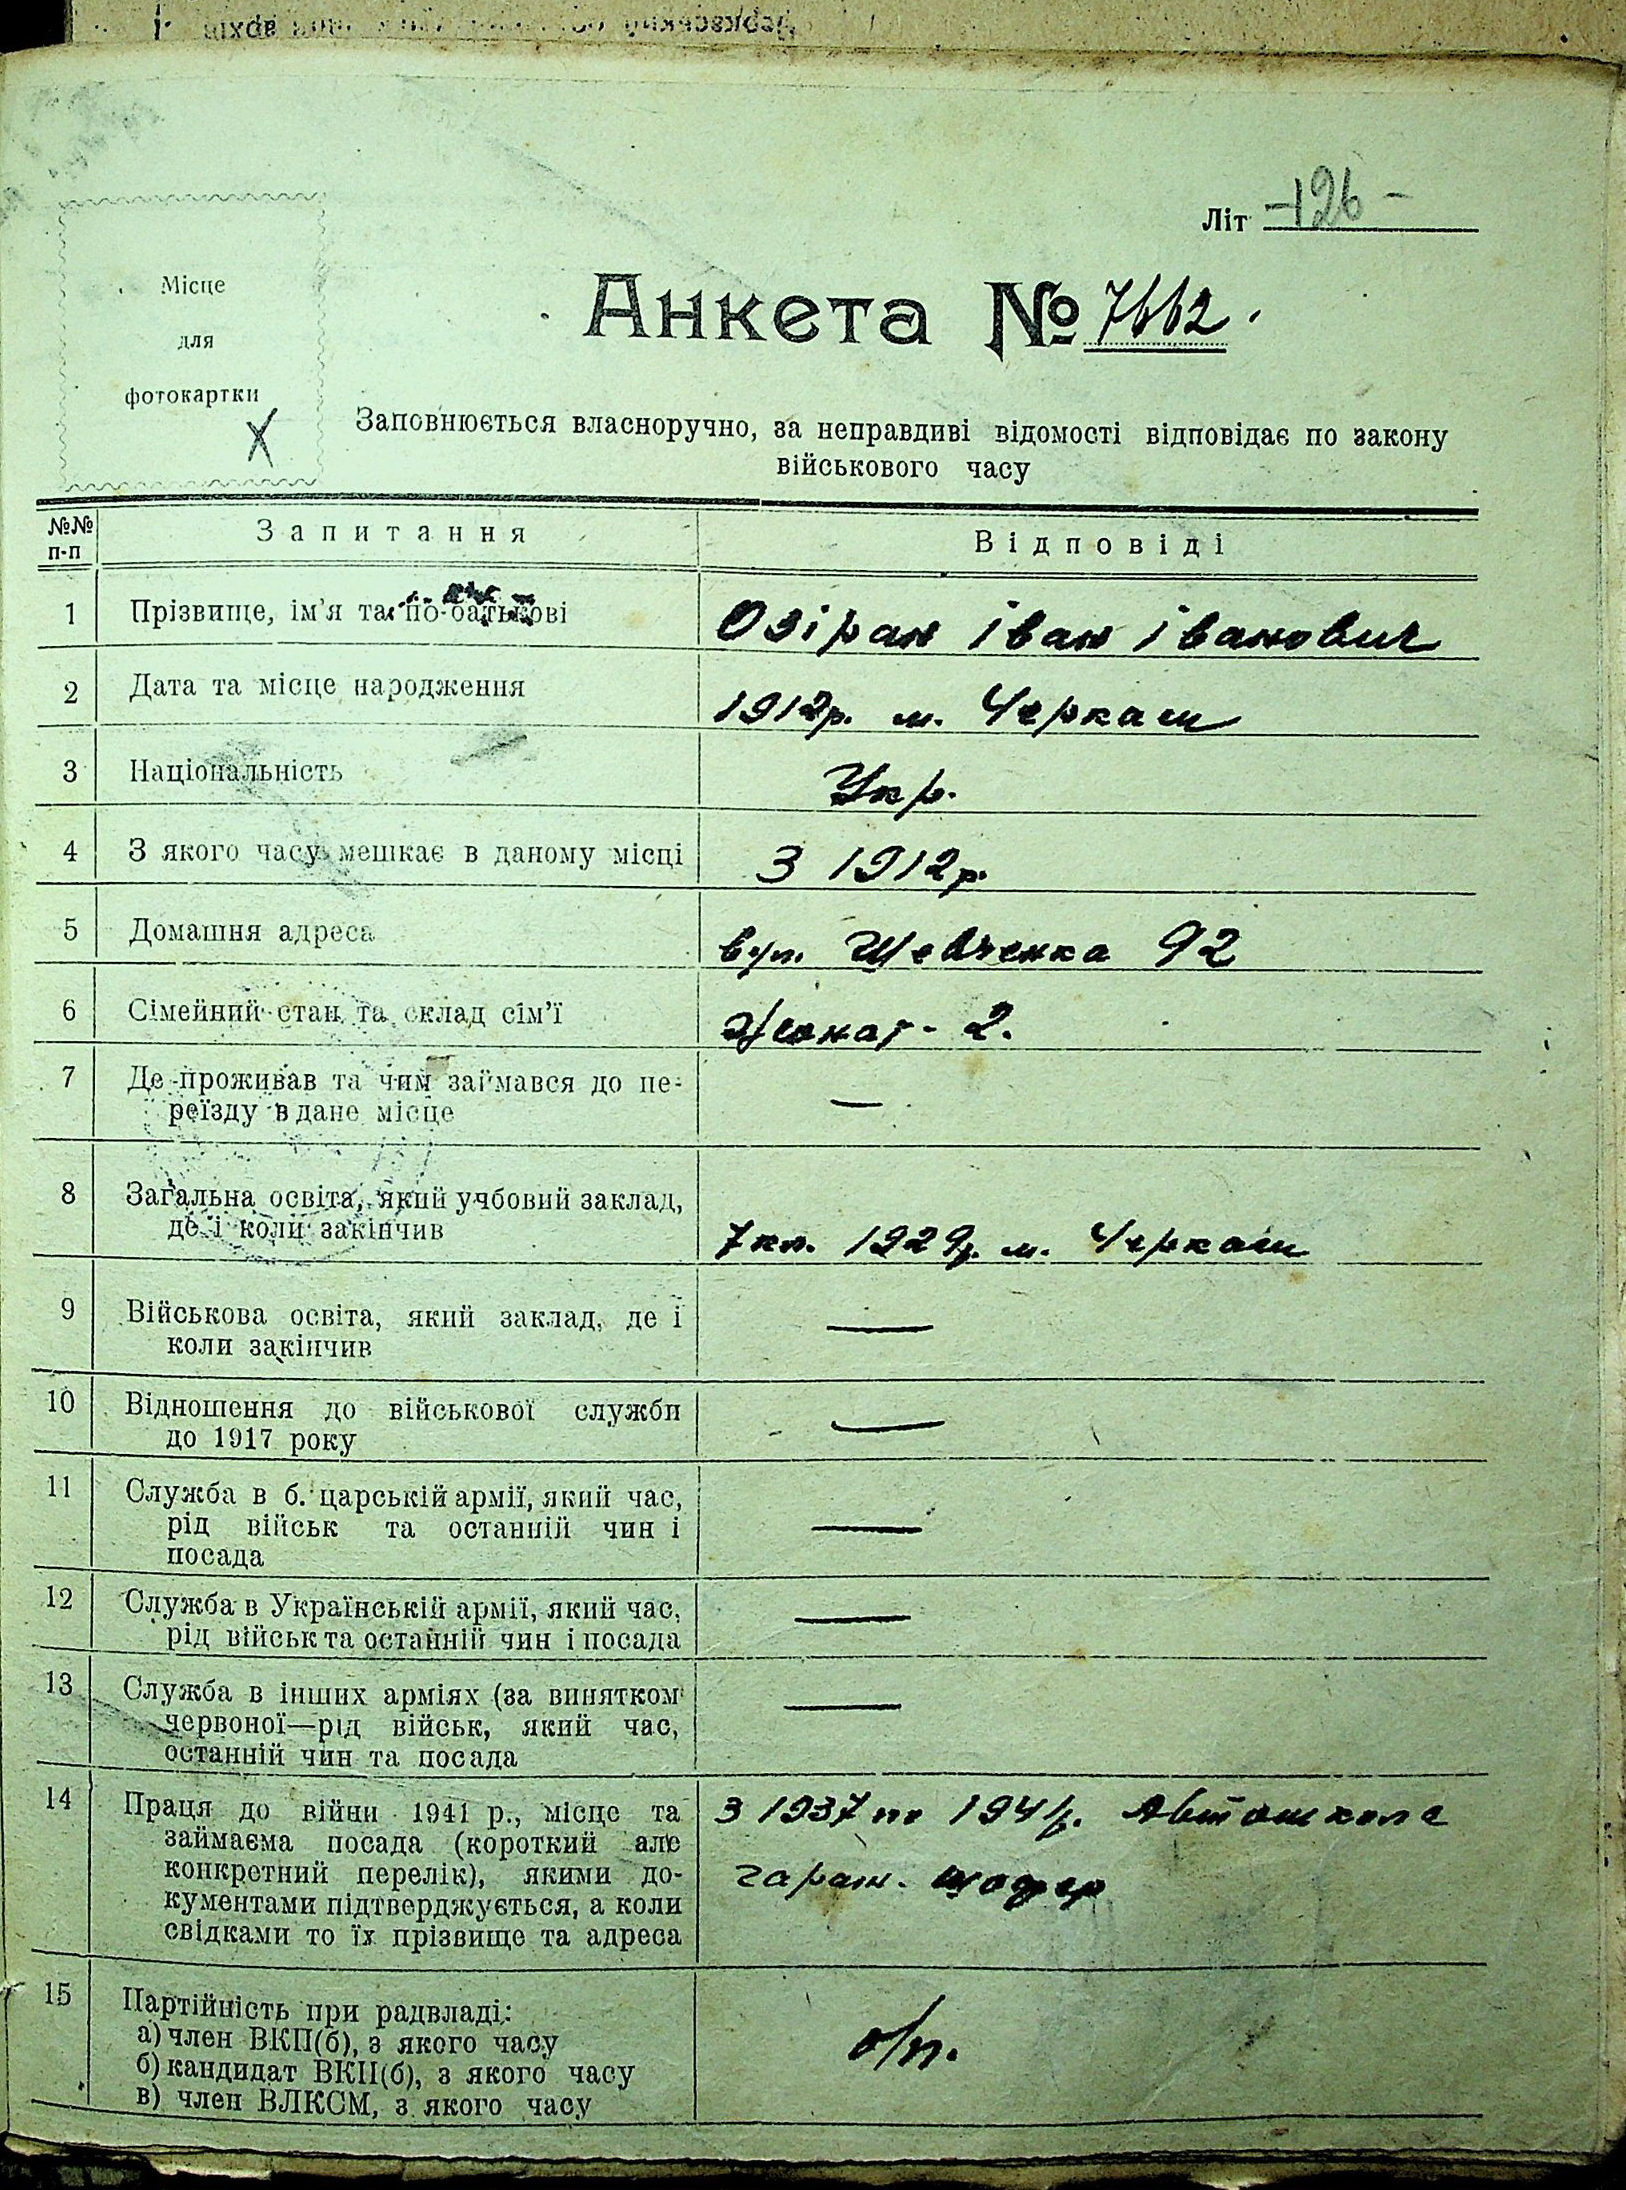 Літ -126-
Місце
для
фотокартки
Анкета № 7662.
Заповнюється власноручно, за неправдиві відомості відповідає по закону
військового часу
№№ п-п Запитання Відповіді
1 Прізвище, ім'я та по-батькові Озіран Іван Іванович
2 Дата та місце народження 1912р. м. Черкаси
3 Національність Укр.
4 З якого часу мешкає в даному місці З 1912р.
5 Домашня адреса вул. Шевченка 92
6 Сімейний стан та склад сім'ї Жонат - 2.
7 Де проживав та чим займався до пе-
реїзду в дане місце —
8 Загальна освіта, який учбовий заклад,
де і коли закінчив 7 кл. 1929р. м. Черкаси
9 Військова освіта, який заклад, де і
коли закінчив —
10 Відношення до військової служби
до 1917 року —
11 Служба в б. царській армії, який час,
рід військ та останній чин і
посада —
12 Служба в Українській армії, який час,
рід військ та останній чин і посада —
13 Служба в інших арміях (за винятком
червоної—рід військ, який час,
останній чин та посада —
14 Праця до війни 1941 р., місце та З 1937 по 1941р. Автошкола
займаєма посада (короткий але
конкретний перелік), якими до- гараж. шофер
кументами підтверджується, а коли
свідками то їх прізвище та адреса
15 Партійність при радвладі:
а) член ВКП(б), з якого часу
б) кандидат ВКП(б), з якого часу б/п.
в) член ВЛКСМ, з якого часу